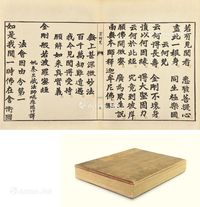 若有見聞者　悉發菩提心
盡此一報身　同生極樂國
云何梵
云何得長壽　金剛不壞身
復以何因緣　得大堅固力
云何於此經　究竟到彼岸
願佛開微密　廣為眾生說
南無本師釋迦牟尼佛
無上甚深微妙法
百千萬劫難遭遇
我今見聞得受持
願解如來真實義
金剛般若波羅蜜經
姚秦三藏法師鳩摩羅什譯
法會因由分第一
如是我聞一時佛在舍衛國